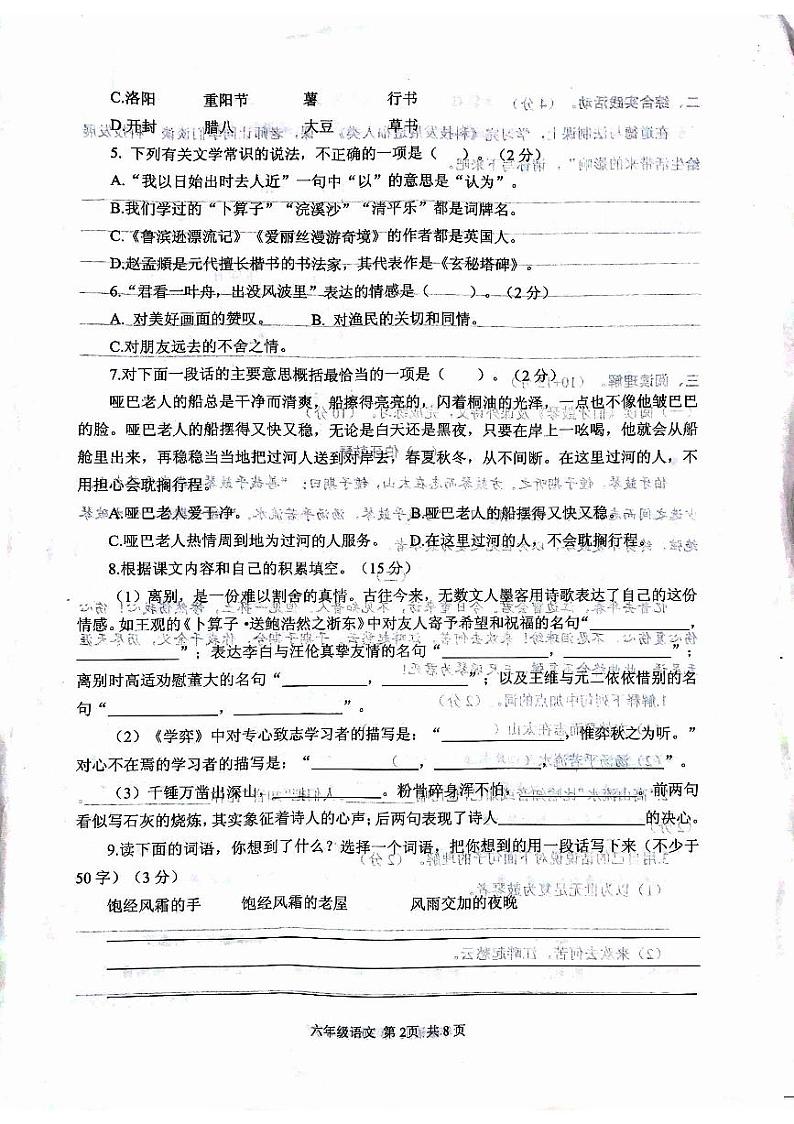 C.洛阳 重阳节 薯 行书
D.开封 腊八 大豆 草书
5. 下列有关文学常识的说法，不正确的一项是（ ）。（2 分）
A.“我以日始出时去人近”一句中“以”的意思是“认为”。
B.我们学过的“卜算子”“浣溪沙”“清平乐”都是词牌名。
C.《鲁滨逊漂流记》《爱丽丝漫游奇境》的作者都是英国人。
D.赵孟頫是元代擅长楷书的书法家，其代表作是《玄秘塔碑》。
6.“君看一叶舟，出没风波里”表达的情感是（ ）。（2 分）
A. 对美好画面的赞叹。 B. 对渔民的关切和同情。
C.对朋友远去的不舍之情。
7.对下面一段话的主要意思概括最恰当的一项是（ ）。（2 分）
哑巴老人的船总是干净而清爽，船擦得亮亮的，闪着桐油的光泽，一点也不像他皱巴巴
的脸。哑巴老人的船摆得又快又稳，无论是白天还是黑夜，只要在岸上一吆喝，他就会从船
舱里出来，再稳稳当当地把过河人送到对岸去，春夏秋冬，从不间断。在这里过河的人，不
用担心会耽搁行程。
A.哑巴老人爱干净。 B.哑巴老人的船摆得又快又稳。
C.哑巴老人热情周到地为过河的人服务。 D.在这里过河的人，不会耽搁行程。
8.根据课文内容和自己的积累填空。（15 分）
（1）离别，是一份难以割舍的真情。古往今来，无数文人墨客用诗歌表达了自己的这份
情感。如王观的《卜算子·送鲍浩然之浙东》中对友人寄予希望和祝福的名句“____________，
____________”；表达李白与汪伦真挚友情的名句“____________，____________”；
离别时高适劝慰董大的名句“__________，__________”；以及王维与元二依依惜别的名
句“____________，____________”。
（2）《学弈》中对专心致志学习者的描写是：“______________，惟弈秋之为听。”
对心不在焉的学习者的描写是：“____________，____________，____________”。
（3）千锤万凿出深山，____________。粉骨碎身浑不怕，____________。前两句
看似写石灰的烧炼，其实象征着诗人的心声；后两句表现了诗人________________的决心。
9.读下面的词语，你想到了什么？选择一个词语，把你想到的用一段话写下来（不少于
50 字）（3 分）
饱经风霜的手 饱经风霜的老屋 风雨交加的夜晚
六年级语文 第 2页 共 8 页